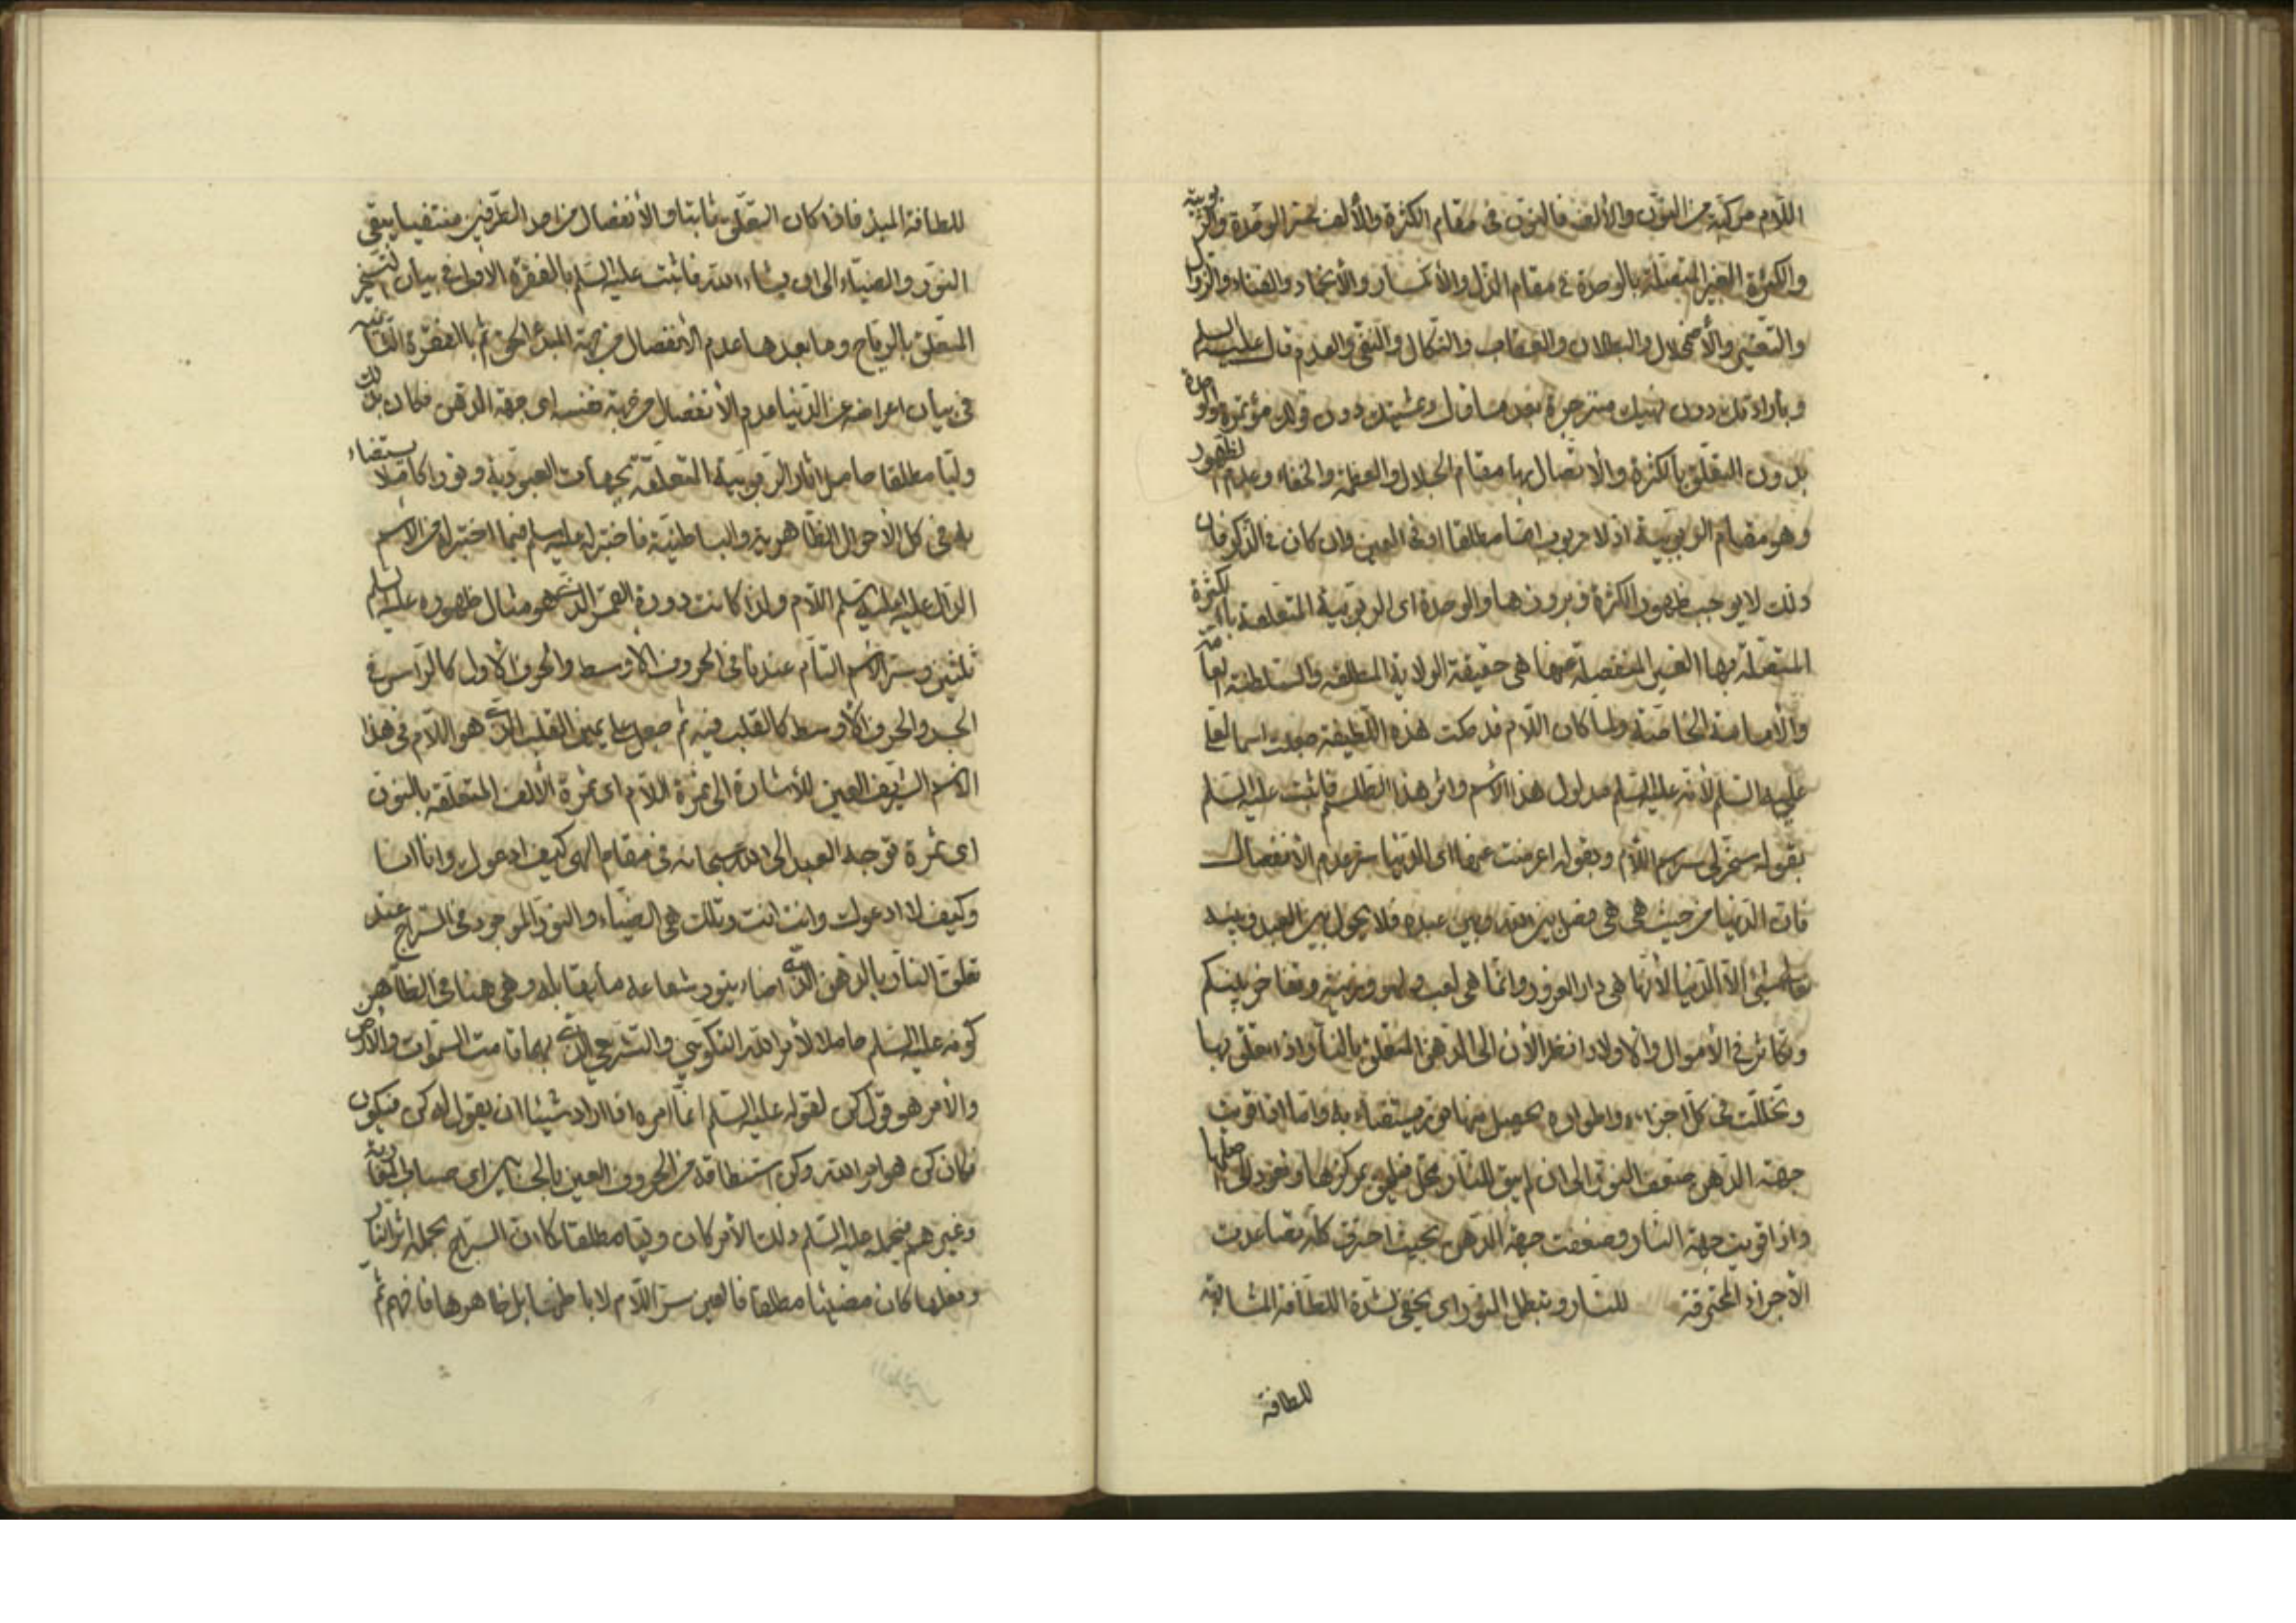 اللام مركبة من النون والألف فالنون فى مقام الكثرة والألف سر الوحدة والربوبية
والكثرة الغير المتصلة بالوحدة فى مقام الذل والأنكسار والأنخماد والفناء والزوال
والتعيّن والأضمحلال والبطلان والعقاب والنكال والنفى والعدم قال عليه السلم
وبأرادتك دون نهيك منزجرة فعند مشيتك دون قولك مؤتمرة والوحدة
بدون التعلق بالكثرة والاتصال بها مقام الجلال والعظمة والخفاء وعدم الظهور
وهو مقام الربوبية اذ لا مربوب ايضا مطلقا اى فى العين وان كان فى الذكر فان
ذلك لا يوجب ظهور الكثرة وبروزها والوحدة اى الربوبية المتعلقة بالكثرة
المتصلة بها الغير المنفصلة عنها هى حقيقة الولاية المطلقة والسلطنة العامة
والأمامة الخاصة ولما كان اللام قد حكت هذه اللطيفة جعلت اسما لعلى
عليه السلم لأنه عليه السلم مدلول هذا الأسم واثر هذا الطلسم فاثبت عليه السلم
بقوله سخر لى سر اللام وبقوله اعرضت عنها اى الدنيا سر عدم الأنفصال
فان الدنيا من حيث هى هى فصل بين الله وبين عبده فلا يحول بين العبد وبينه
تعالى شئ الا الدنيا لأنها هى دار الغرور وانما هى لعب ولهو وزينة وتفاخر بينكم
وتكاثر فى الأموال والأولاد انظر الأن الى الدهن المتعلق بالنار اذا تعلق بها
وتخللت فى كل اجزائه واطواره يحصل منها نور يستضاء به واما اذا قويت
جهة الدهن ضعف النور الى ان لم يبق للنار محل فتلحق بمركزها وتعود الى اصلها
واذا قويت جهة النار وضعفت جهة الدهن بحيث احترق كله تصاعدت
الأجزاء المحترقة للنار وتبطل النور اى يخفى لشدة اللطافة المشابهة
للطافة
للطافة المبدء فاذا كان التعلق ثابتا والأنفصال من احد الطرفين منتفيا يبقى
النور والضياء الى ان يشاء الله فاثبت عليه السلم بالفقرة الاولى فى بيان التسخير
المتعلق بالرياح وما بعدها عدم الأنفصال من جهة المبدء الحق ثم بالفقرة الثانية
فى بيان اعراضه عن الدنيا عدم الأنفصال من جهة نفسه اى جهة الدهن فكان بذلك
وليا مطلقا حاملا اثار الربوبية المتعلقة بجهات العبودية ونورا كاملا يستضاء
به فى كل الأحوال الظاهرية والباطنية فاختير له عليه السلم فيما اختير له من الأسم
الدال عليه عليه السلم اللام ولذا كانت دورة القمر الذى هو مثال ظهوره عليه السلم
ثلثين وسر الأسم التام عندنا فى الحروف الأوسط والحرف الأول كالرأس فى
الجسد والحرف الأوسط كالقلب فيه ثم جعل على يمين القلب الذى هو اللام فى هذا
الأسم الشريف العين للأشارة الى ثمرة اللام اى ثمرة الألف المتعلقة بالنون
اى ثمرة توجه العبد الى الله سبحانه فى مقام الهى كيف ادعوك وانا انا
وكيف لا ادعوك وانت انت وتلك هى الضياء والنور الموجود فى السراج عند
تعلق النار بالدهن الذى اضاء بنور شعاعه ما يقابله وهى هنا فى الظاهر
كونه عليه السلم حاملا لأمر الله التكوينى والتشريعى الذى بهما قامت السموات والأرض
والأمر هو قول كن لقوله عليه السلم انما امره اذا اراد شيئا ان يقول له كن فيكون
فكان كن هو امر الله وكن استنطاقه من الحروف العين بالحساب
وغيرهم فبحمله عليه السلم ذلك الأمر كان وليا مطلقا كما ان السراج بحمله اثر النار
وفعلها كان مضيئا مطلقا فالعين سر اللام لا باطنها بل ظاهرها فافهم ثم